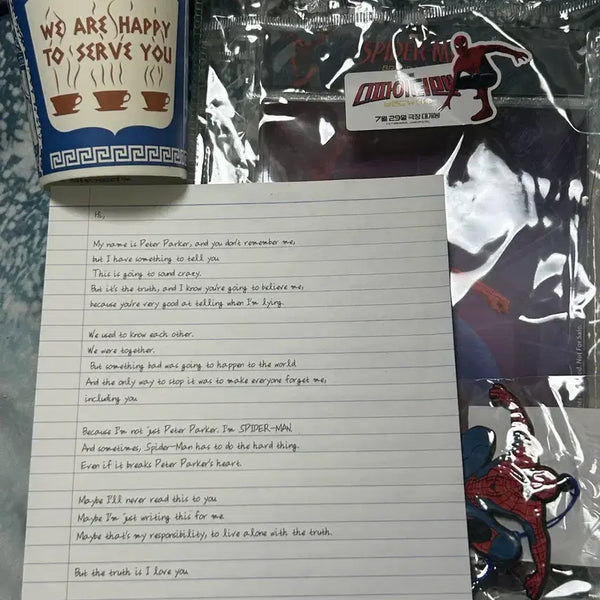 WE ARE HAPPY
TO SERVE YOU
SPIDER-M
스파이더맨
7월 29일 극장 대개봉
Not For Sale.
Hi,
My name is Peter Parker, and you don't remember me,
but I have something to tell you
This is going to sound crazy.
But it's the truth, and I know you're going to believe me,
because you're very good at telling when I'm lying.
We used to know each other.
We were together.
But something bad was going to happen to the world
And the only way to stop it was to make everyone forget me,
including you
Because I'm not just Peter Parker. I'm SPIDER-MAN.
And sometimes, Spider-Man has to do the hard thing.
Even if it breaks Peter Parker's heart.
Maybe I'll never read this to you
Maybe I'm just writing this for me.
Maybe that's my responsibility, to live alone with the truth.
But the truth is I love you